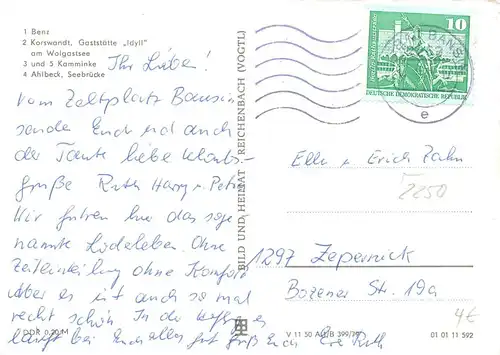 1 Benz
2 Korswandt, Gaststätte „Idyll"
am Wolgastsee
3 und 5 Kamminke
4 Ahlbeck, Seebrücke
Ihr Lieben!
Vom Zeltplatz Bansin
sende Euch und auch
der Tante liebe Urlaubs-
grüße Ruth Harry u. Petra
Wir führen hier das soge
nannte Lodeleben. Ohne
Zeiteinteilung ohne Komfort
Aber es ist auch so mal
recht schön. In der
läuft bei Euch alles gut Grüß Euch Eure Ruth
DDR 0,20 M
BILD UND HEIMAT REICHENBACH (VOGTL)
V 11 50 A1/B 399/79
01 01 11 592
10
DEUTSCHE DEMOKRATISCHE REPUBLIK
BANSIN
e
Elli u. Erich Zahn
2250
1297 Zepernick
Bozener Str. 19a
4€